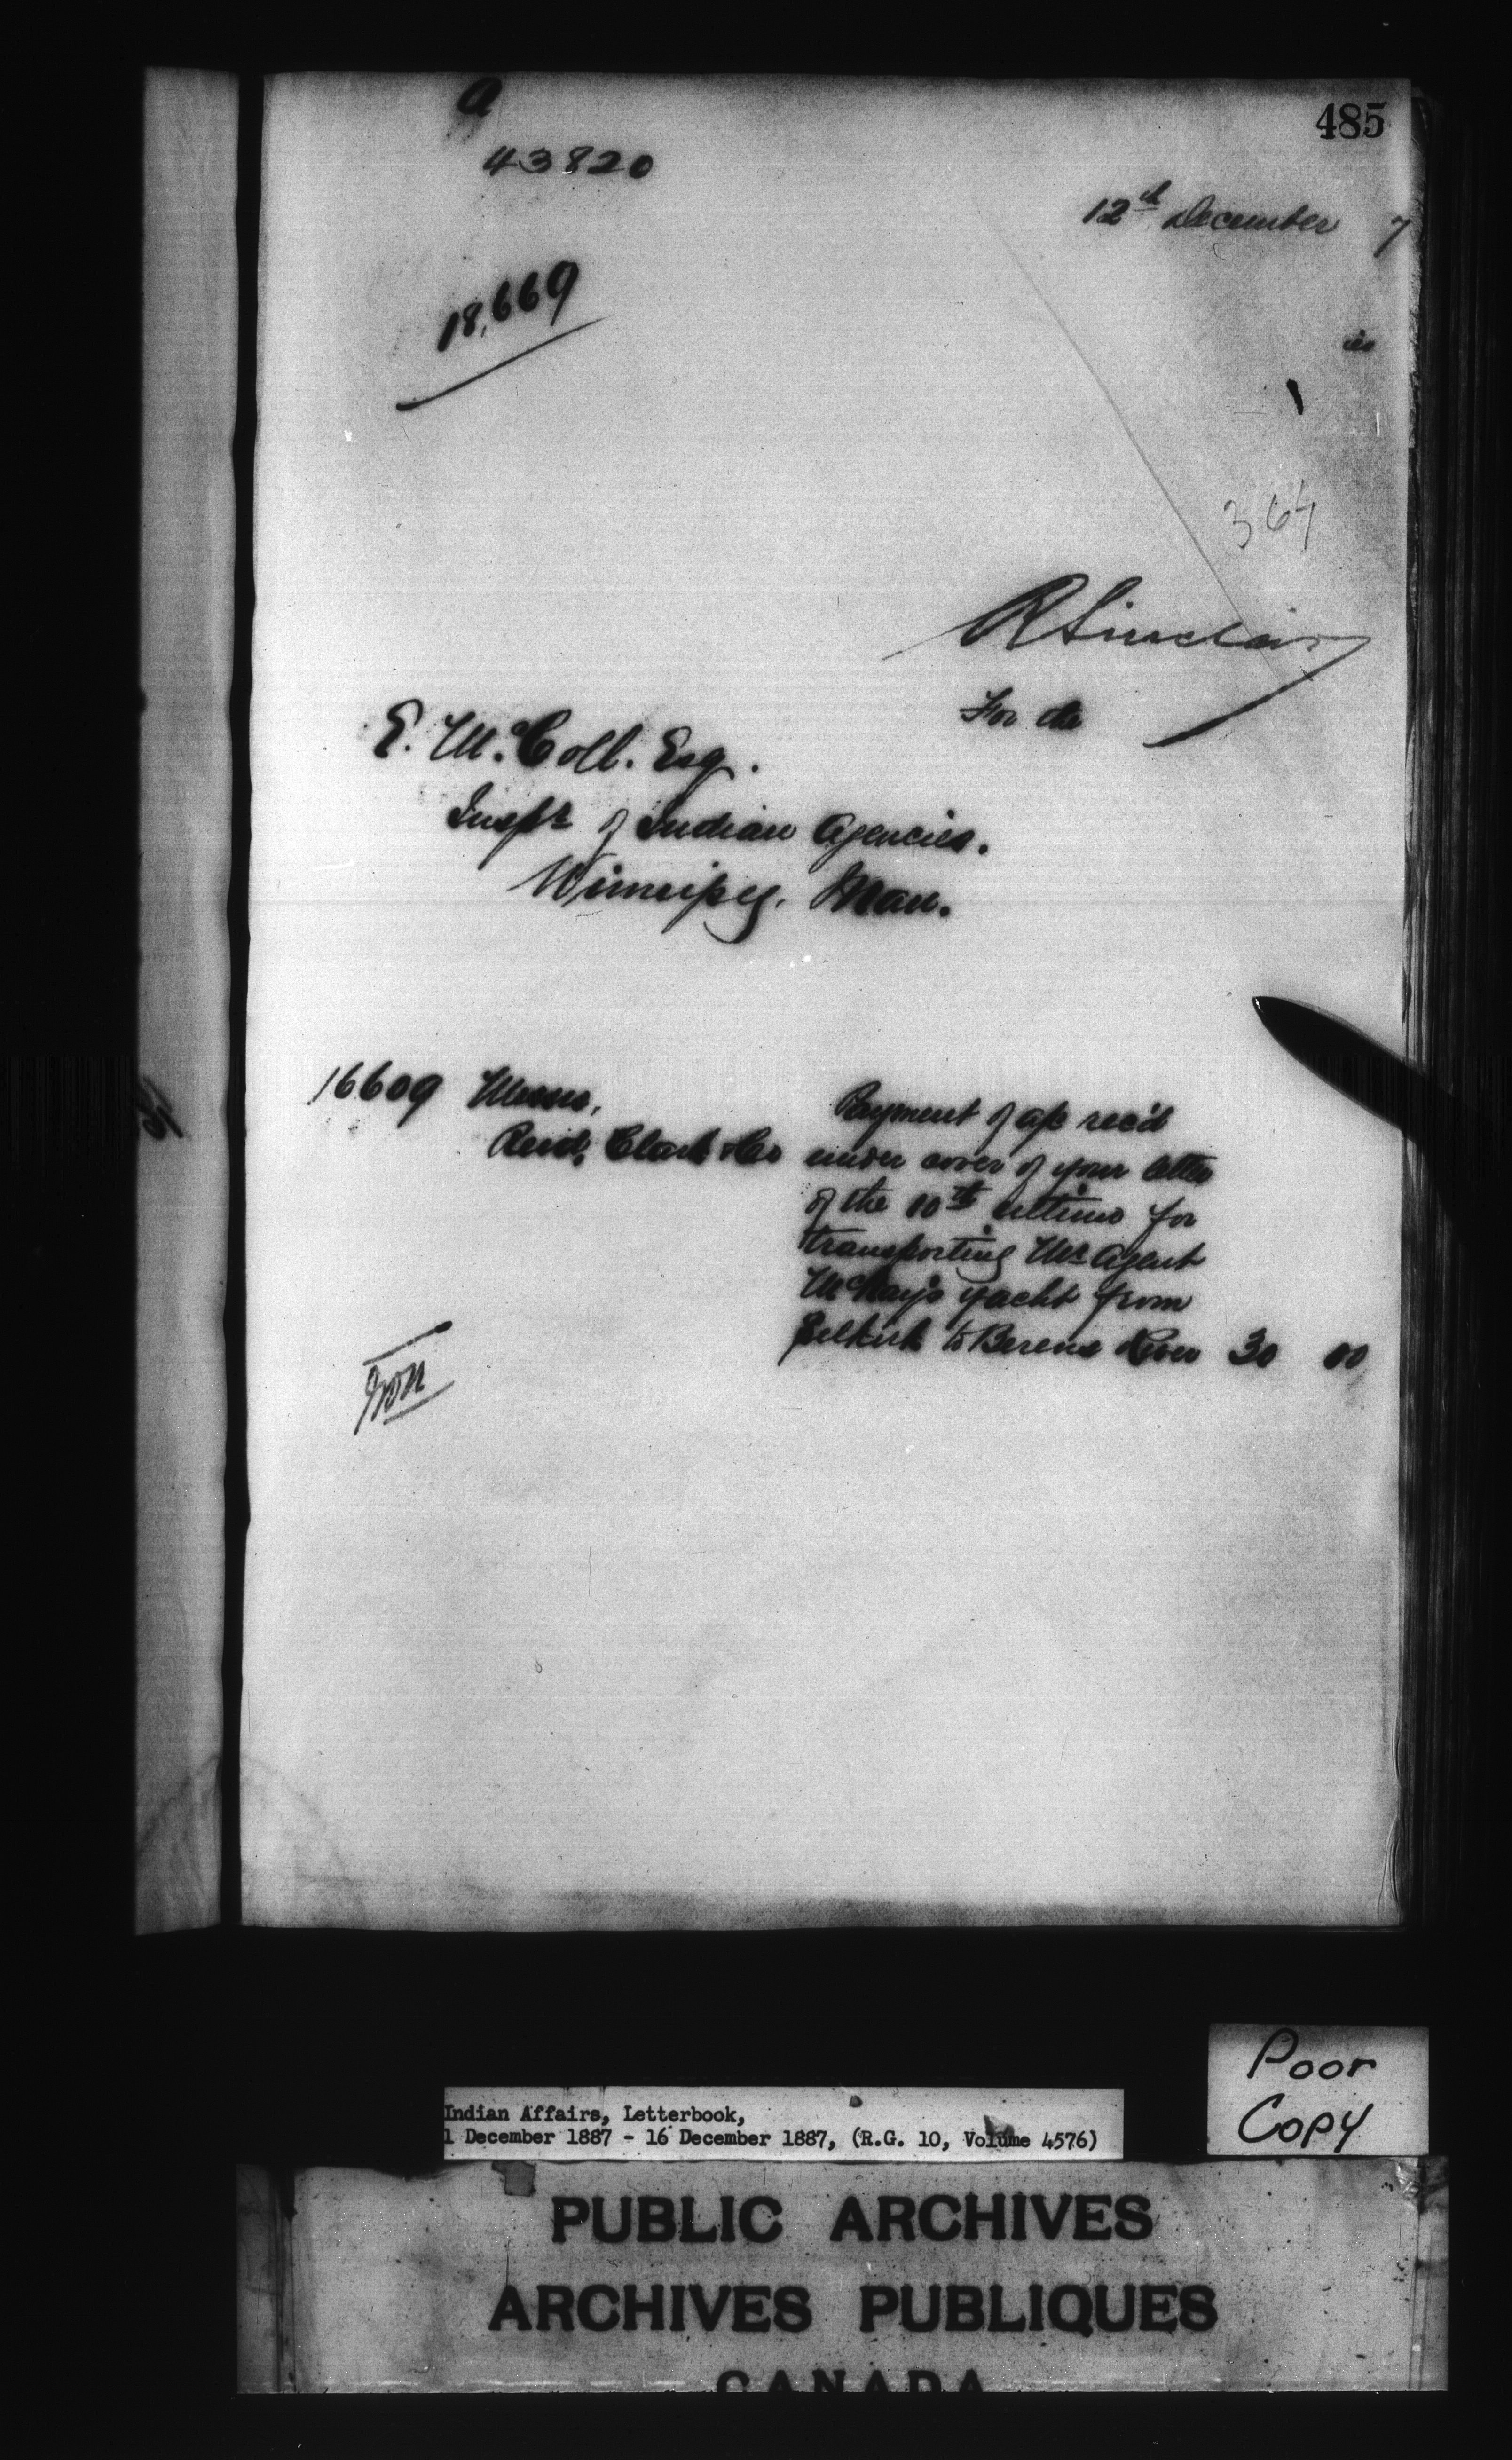 485
A
43820
12th December 7
18,669
is
364
R Sinclair
For the
E. McColl. Esq.
Inspr of Indian Agencies.
Winnipeg. Man.
16609 Messrs.
Reid, Clark & Co
Payment of a/c rec'd
under cover of your letter
of the 10th ultimo for
transporting Mr Agent
McKay's yacht from
Selkirk to Berens River 30 00
Indian Affairs, Letterbook,
1 December 1887 - 16 December 1887, (R.G. 10, Volume 4576)
Poor
Copy
PUBLIC ARCHIVES
ARCHIVES PUBLIQUES
CANADA